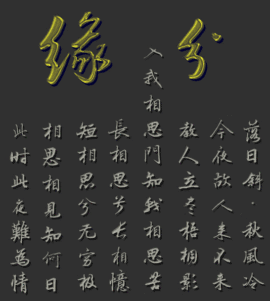 緣分
落日斜·秋風冷
今夜故人來不來
教人立盡梧桐影
入我相思門知我相思苦
長相思兮長相憶
短相思兮無窮極
相思相見知何日
此時此夜難為情